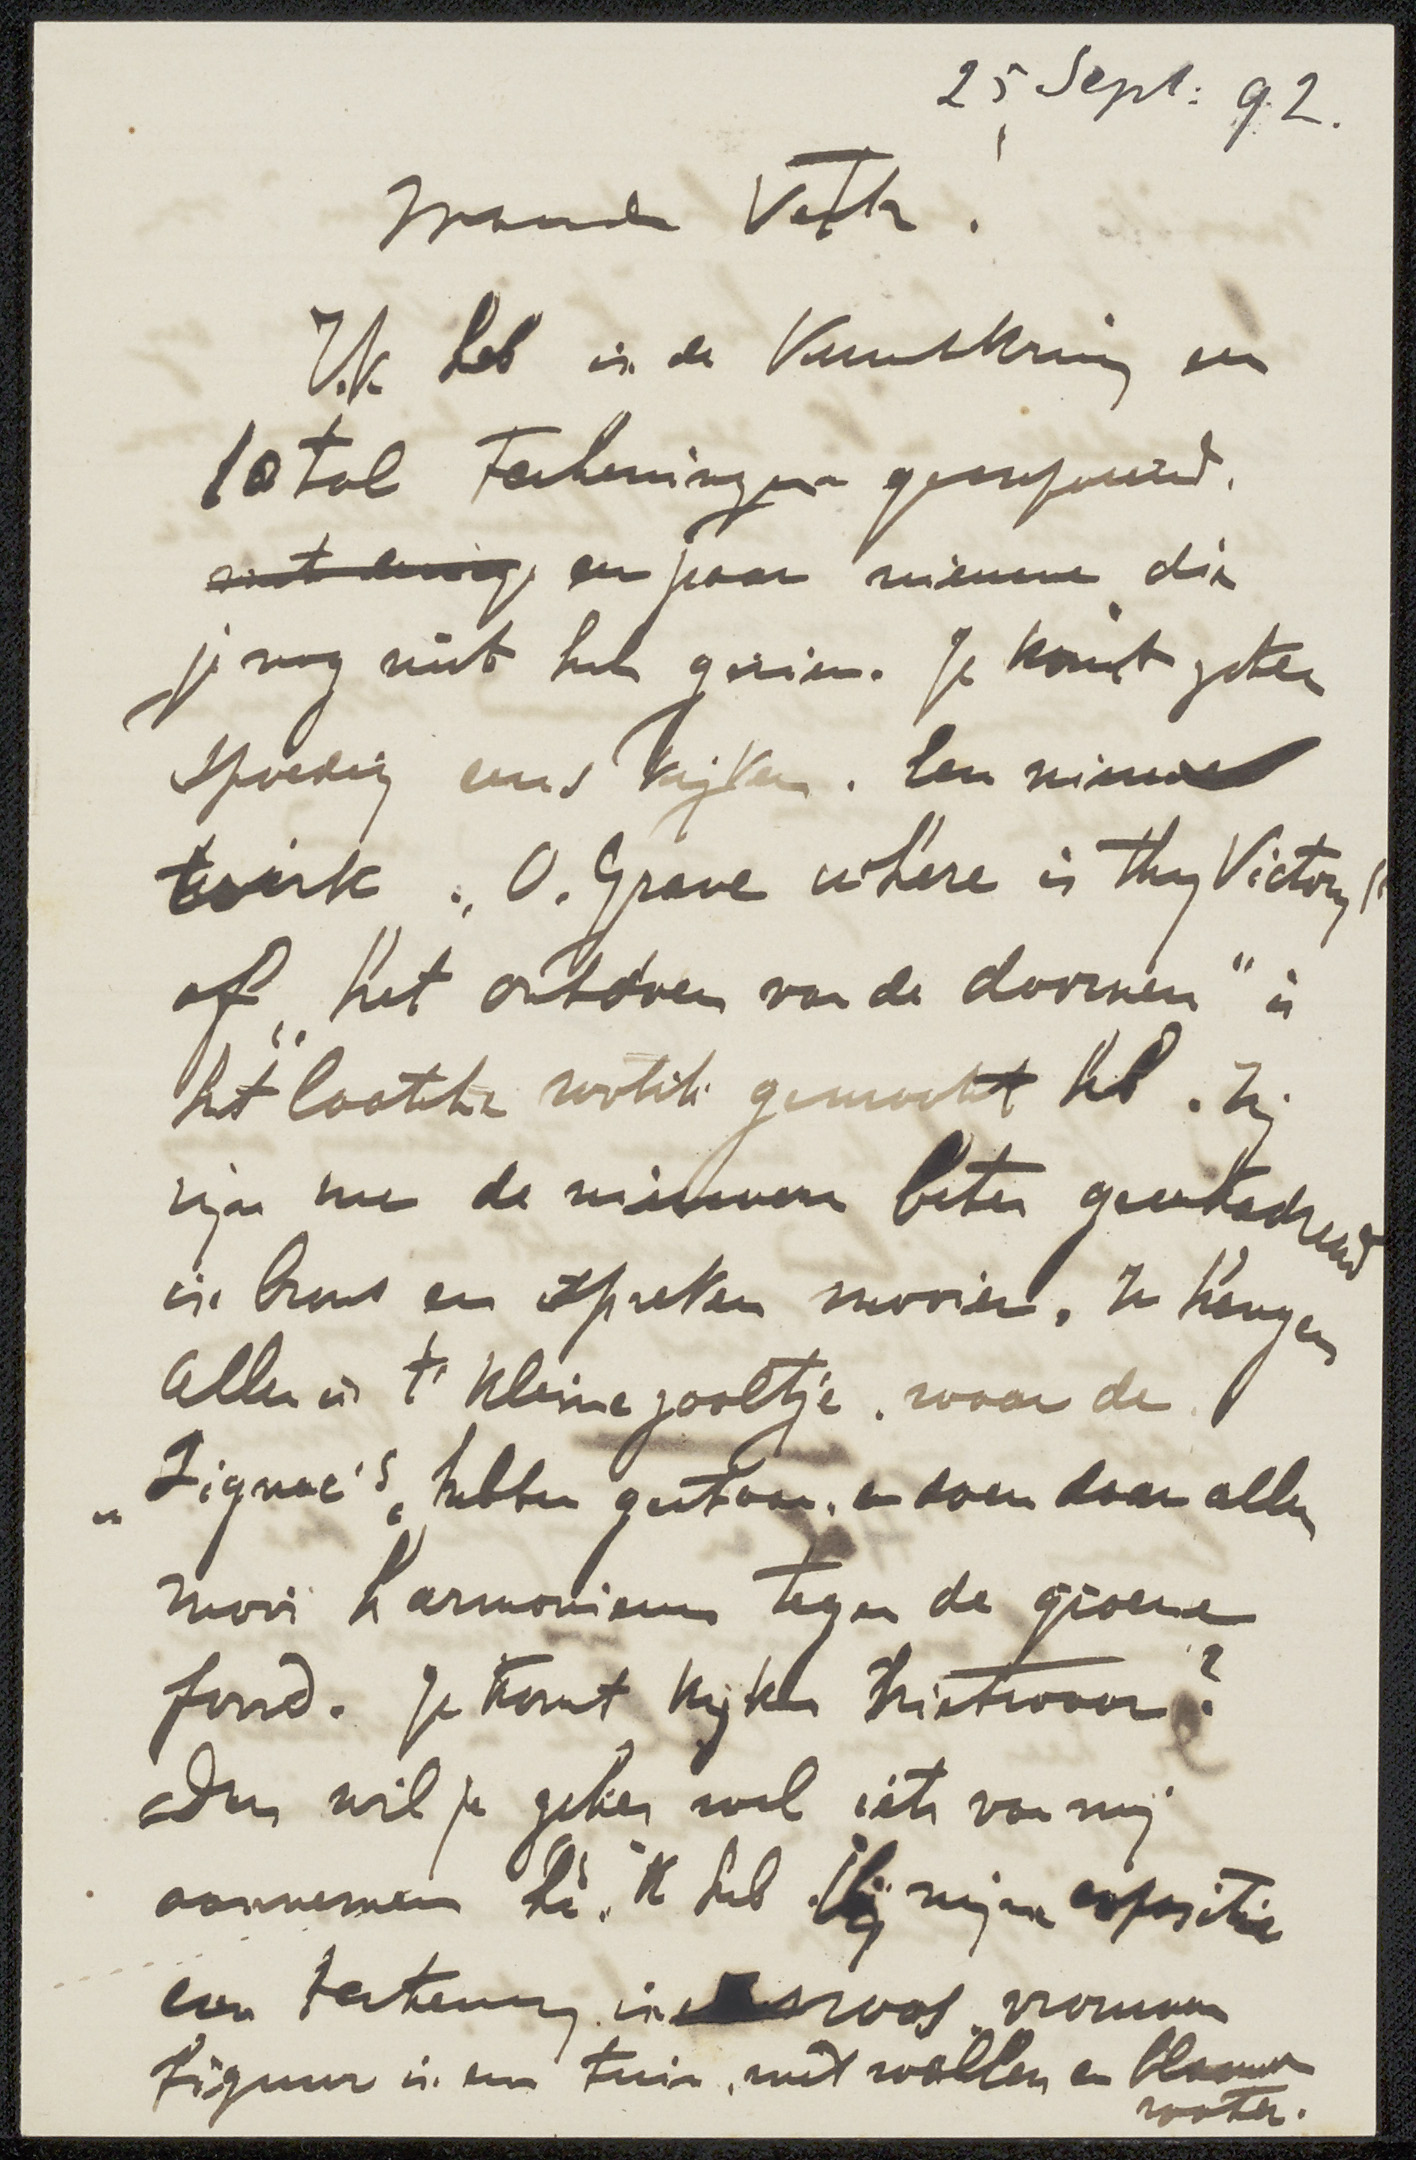 25 Sept: 92.
Waarde Veth!
Ik heb in de Kunstkring een
10 tal Teekeningen geexposeerd.
een paar nieuwe die
je nog niet heb gezien. Je komt zeker
spoedig eens kijken. Een nieuwe
werk „O. Grave where is thy Victory"
of „het ontdoen van de doornen" is
het laatste wat ik gemaakt heb. Zij
zijn nu de nieuwere beter
in brons en spreken mooier. Ze hangen
allen in 't kleine zaaltje. waar de
„Signac's" hebben gestaan. en doen daar allen
mooi harmonieus tegen de groene
fond. Je komt kijken niet waar?
Dus wil je zeker wel iets van mij
aannemen hè. ik heb bij mijne expositie
een teekening in roos vrouwen
figuur in een tuin, met wallen en blauwe
water.